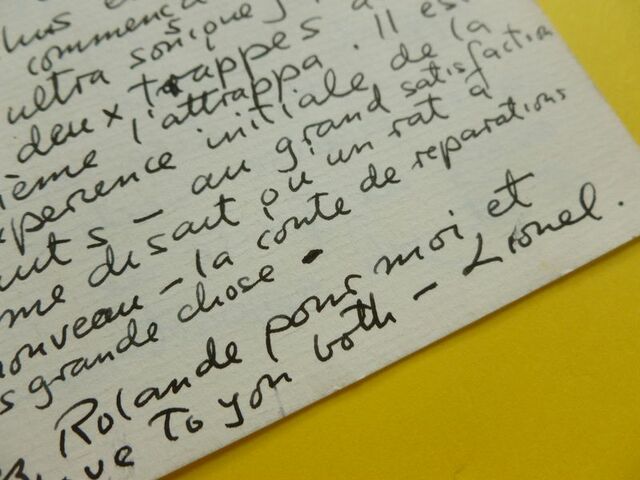 commença
ultra sonique
deux trappes a
ième l'attrappa. Il es
xperience initiale de la
uts - au grand satisfactio
me disait ou un rat a
nouveau - la conte de reparations
s grande chose.
Rolande pour moi et
ve to you both - Lionel.